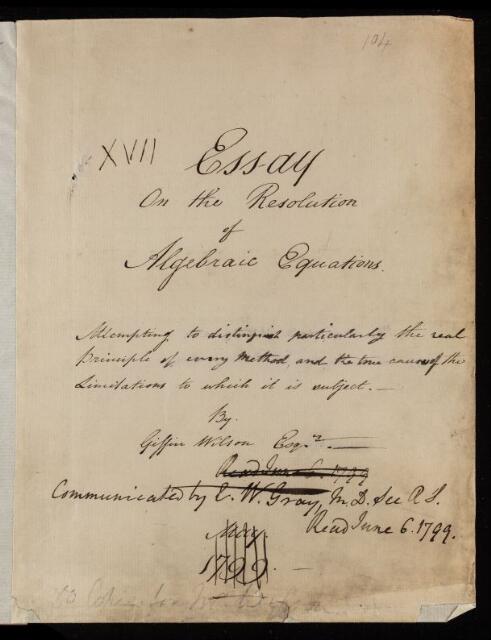 104
XVII Essay
On the Resolution
of
Algebraic Equations.
Attempting to distinguish particularly the real
Principle of every Method, and the true causes of the
Limitations to which it is subject. —
By
Giffin Wilson Esqr. —
Read June 6. 1799
Communicated by E. W. Gray, M.D. Sec R S.
Read June 6. 1799.
May
1799. —